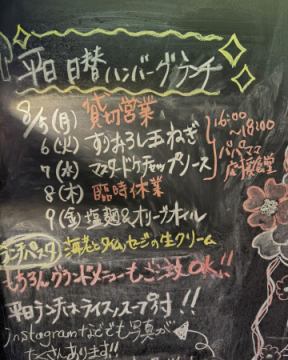 平日 日替ハンバーグランチ
8/5(月) 貸切営業
6(火) すりおろし玉ねぎ
7(水) マスタードケチャップソース
8(木) 臨時休業
9(金) 塩麹&オリーブオイル
16:00
〜18:00
パパママ
応援食堂
ランチパスタ 海老とタイム、セージの生クリーム
もちろんグランドメニューもご注文OK!!
平日ランチはライス、スープ付!!
instagramなどでも写真が
たくさんあります!!